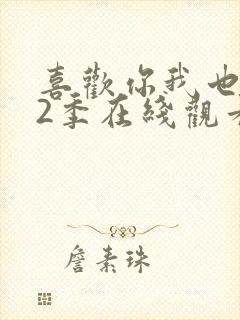 喜歡你我也
2季在綫觀
詹素珠